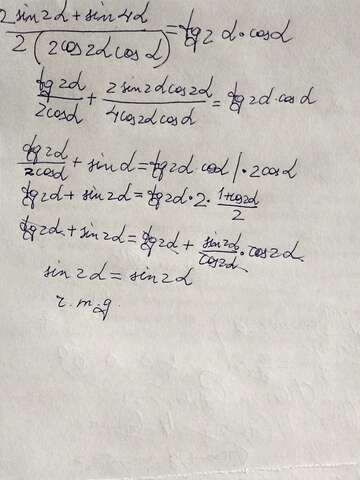 2 sin2α + sin4α / 2(2cos2α cosα) = tg2α · cosα
tg2α / 2cosα + 2 sin2α cos2α / 4cos2α cosα = tg2α · cosα
tg2α / 2cosα + sinα = tg2α · cosα | · 2cosα
tg2α + sin2α = tg2α · 2 · 1+cos2α / 2
tg2α + sin2α = tg2α + sin2α / cos2α · cos2α
sin2α = sin2α
r.m.g.